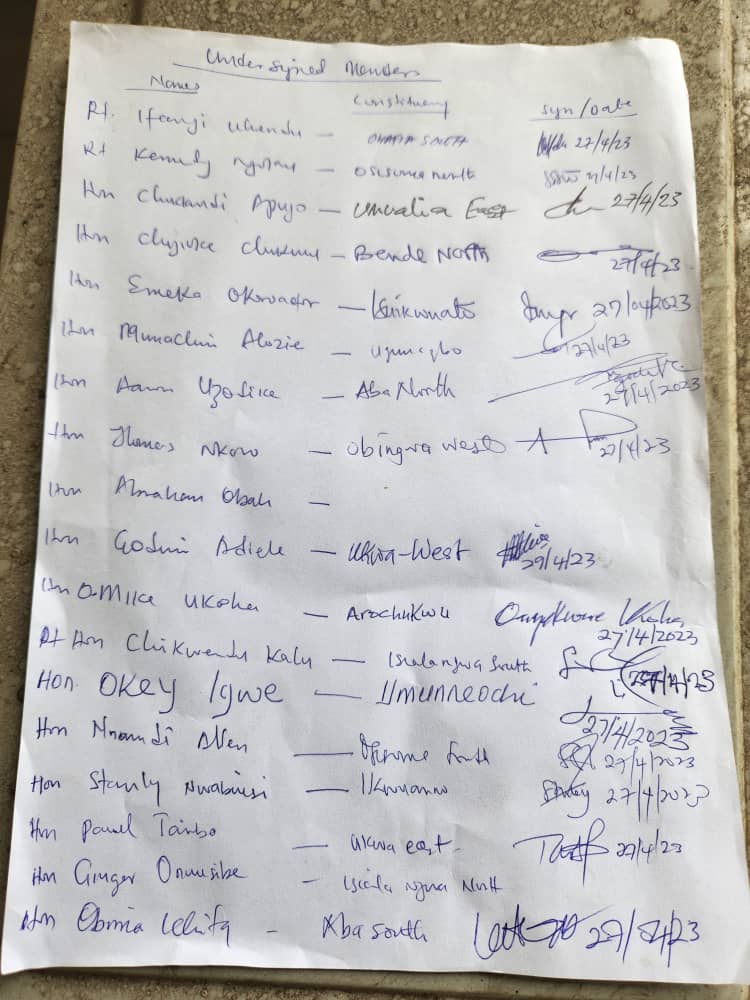 Undersigned Members
Names Constituency Syn/Date
Rt. Ifeanyi Uchendu — OHAFIA SOUTH 27/4/23
Rt Kennedy Njoku — Osisioma North 27/4/23
Hon Chukundi Apugo — Umuahia East 27/4/23
Hon Chijioke Chukwu — Bende North 27/4/23
Hon Emeka Okoroafor — Isuikwuato 27/04/2023
Hon Mgunachim Alozie — Ugwunagbo 27/4/23
Hon Aaron Uzodike — Aba North 27/4/2023
Hon Thomas Nkoro — Obingwa West 27/4/23
Hon Abraham Obah —
Hon Godwin Adiele — Ukwa-West 29/4/23
Hon O. Mike Ukoha — Arochukwu 27/4/2023
Rt Hon Chikwendu Kalu — Isialangwa South 27/4/23
Hon. OKEY Igwe — Umunneochi 27/4/2023
Hon Nnamdi Allen — 27/4/2023
Hon Stanly Nwabuisi — Ikwuano 27/4/2023
Hon Paul Taribo — Ukwa east. 27/4/23
Hon Ginger Onwusibe — Isiala Ngwa North
Hon Obinna Ichita — Aba South 27/04/23